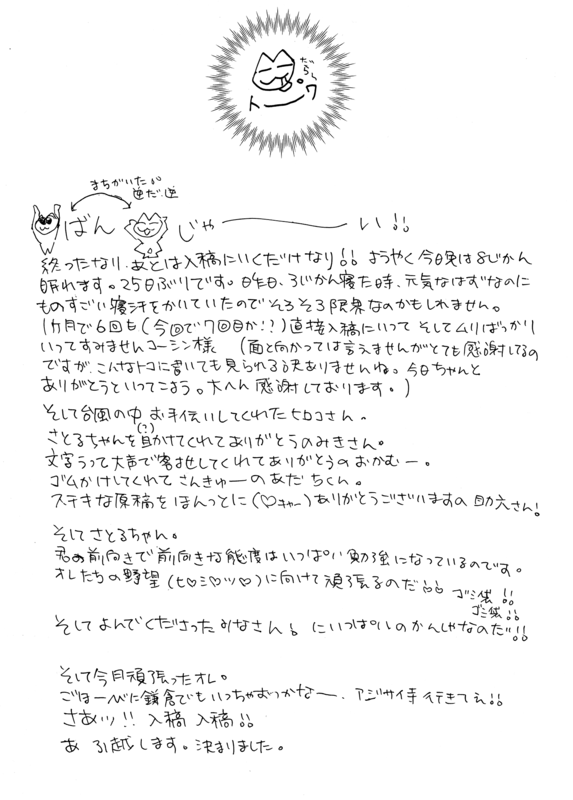 だらん
トーク
まちがいた
逆だ、逆
ばん じゃーーーい!!
終ったなり、あとは入稿にいくだけなり!! ようやく今日晩は8じかん
眠れます。25日ぶりです。昨日、3じかん寝た時、元気なはずなのに
ものすごい寝汗をかいていたのでそろそろ限界なのかもしれません。
1カ月で6回も(今回で7回目か!?)直接入稿にいって そしてムリばっかり
いってすみませんコーシン様 (面と向かっては言えませんがとても感謝してるの
ですが、こんなトコに書いても見られる訳ありませんね。今日ちゃんと
ありがとうといってこよう。大へん感謝しております。)
そして台風の中お手伝いしてくれたヒロコさん。
さとるちゃんを(?)貸かせてくれてありがとうのみきさん。
文字うって大声で寄せしてくれてありがとうのおかむー。
ゴムかけしてくれてさんきゅーのあだちくん。
ステキな原稿をほんっとに(♡キャー)ありがとうございますの 助六さん!
そしてさとるちゃん。
君の前向きで前向きな態度はいっぱい勉強になっているのです。
オレたちの野望(ヒ♡ミ♡ツ♡)に向けて頑張るのだ!!
ゴミ袋!!
ゴミ袋!!
そしてよんでくださったみなさん! にいっぱいのかんしゃなのだ!!
そして今月頑張ったオレ。
ごほーびに鎌倉でもいっちゃおっかなー、アジサイ寺行きてえ!!
さあッ!! 入稿 入稿!!
あ 引越します。決まりました。